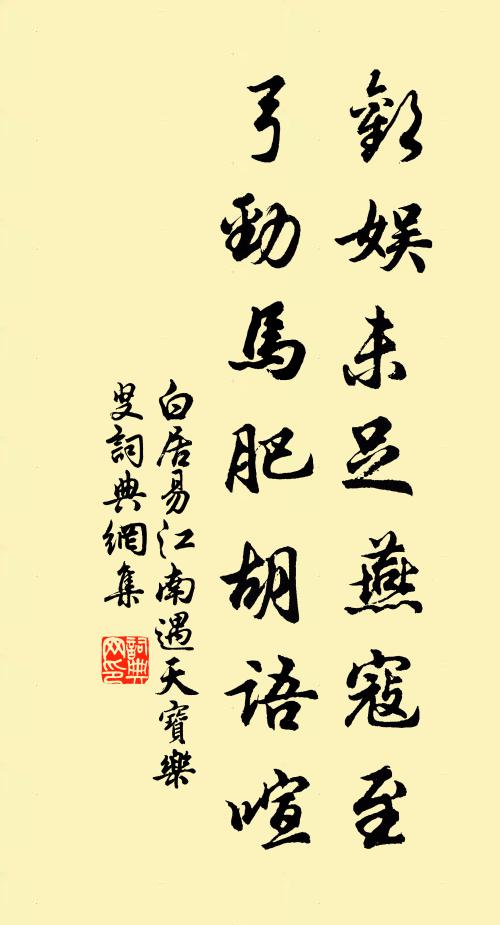 歡娛未足燕寇至
弓勁馬肥胡語喧
白居易江南遇天寶樂
叟詞典網集
詞典
网印